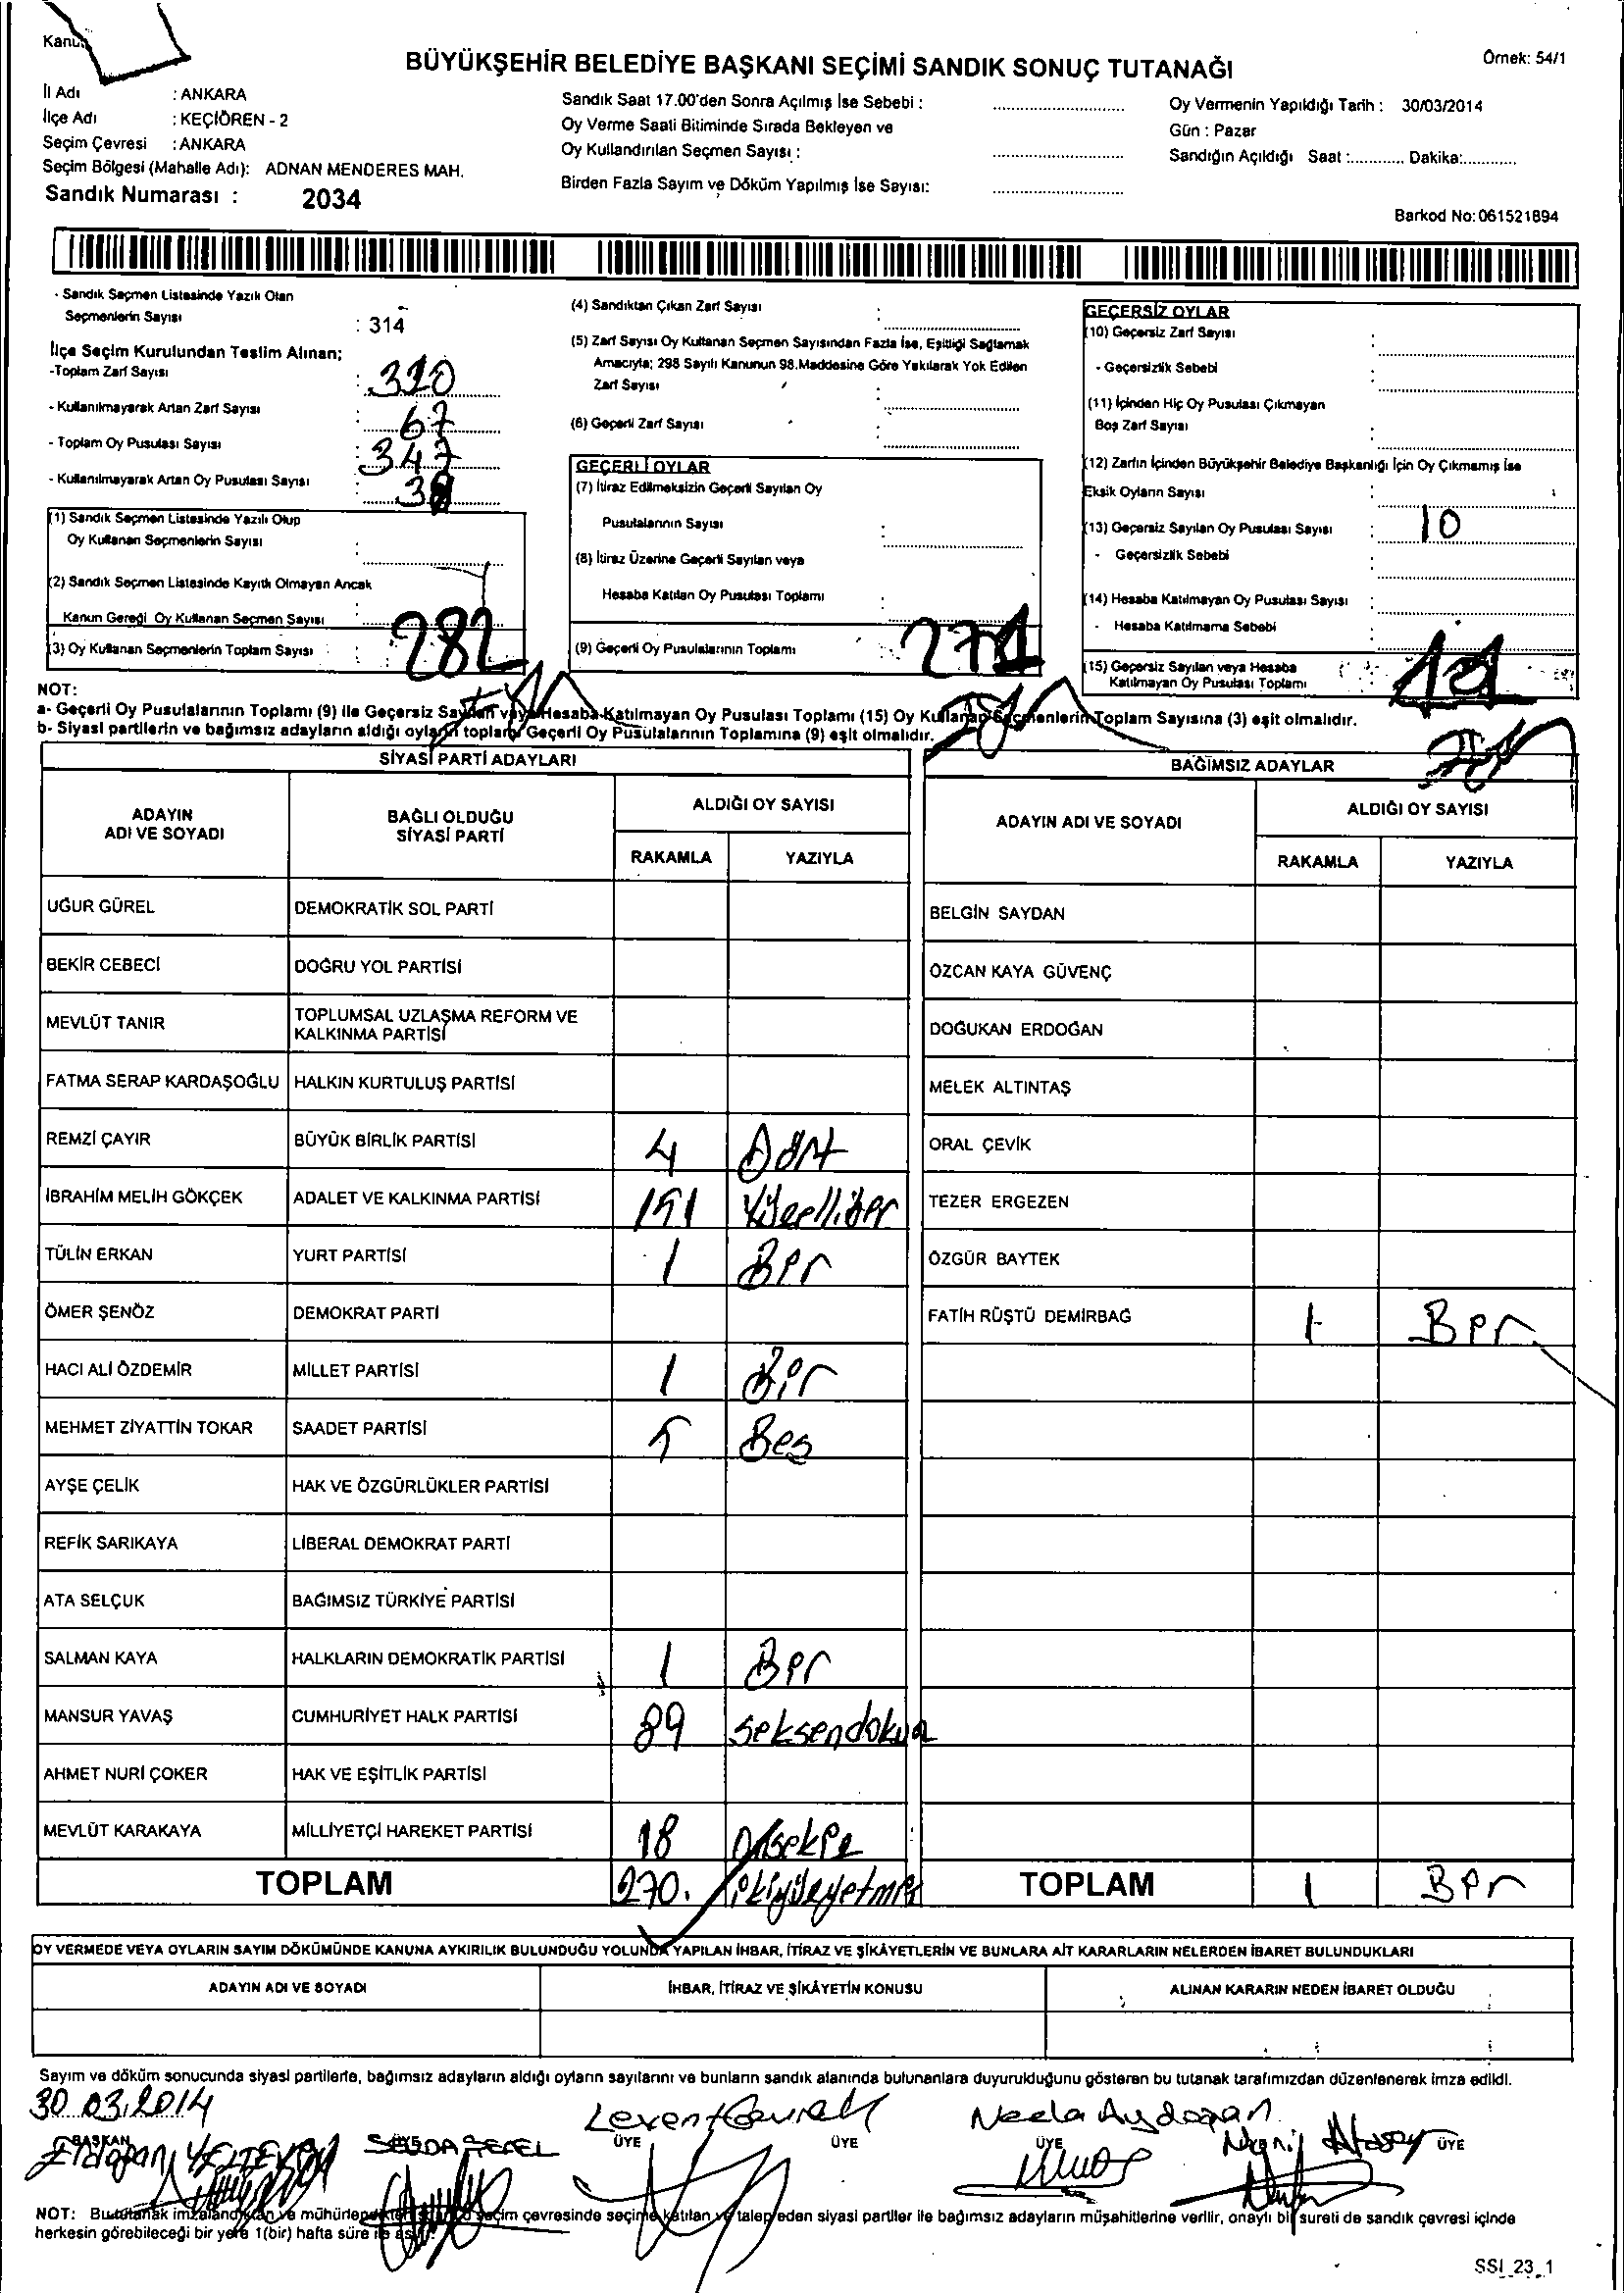 BÜYÜKŞEHİR BELEDİYE BAŞKANI SEÇİMİ SANDIK SONUÇ TUTANAĞI
Örnek: 54/1
İl Adı : ANKARA
İlçe Adı : KEÇİÖREN - 2
Seçim Çevresi : ANKARA
Seçim Bölgesi (Mahalle Adı): ADNAN MENDERES MAH.
Sandık Numarası : 2034
Sandık Saat 17.00'den Sonra Açılmış İse Sebebi :
Oy Verme Saati Bitiminde Sırada Bekleyen ve
Oy Kullandırılan Seçmen Sayısı :
Birden Fazla Sayım ve Döküm Yapılmış İse Sayısı:
Oy Vermenin Yapıldığı Tarih : 30/03/2014
Gün : Pazar
Sandığın Açıldığı Saat :............ Dakika:............
Barkod No: 061521894
- Sandık Seçmen Listesinde Yazılı Olan
Seçmenlerin Sayısı : 314
İlçe Seçim Kurulundan Teslim Alınan;
-Toplam Zarf Sayısı : 320
- Kullanılmayarak Artan Zarf Sayısı : 67
- Toplam Oy Pusulası Sayısı : 347
- Kullanılmayarak Artan Oy Pusulası Sayısı :
(1) Sandık Seçmen Listesinde Yazılı Olup
Oy Kullanan Seçmenlerin Sayısı :
(2) Sandık Seçmen Listesinde Kayıtlı Olmayan Ancak
Kanun Gereği Oy Kullanan Seçmen Sayısı :
(3) Oy Kullanan Seçmenlerin Toplam Sayısı : 282
(4) Sandıktan Çıkan Zarf Sayısı :
(5) Zarf Sayısı Oy Kullanan Seçmen Sayısından Fazla İse, Eşitliği Sağlamak
Amacıyla; 298 Sayılı Kanunun 98.Maddesine Göre Yakılarak Yok Edilen
Zarf Sayısı :
(6) Geçerli Zarf Sayısı :
GEÇERLİ OYLAR
(7) İtiraz Edilmeksizin Geçerli Sayılan Oy
Pusulalarının Sayısı :
(8) İtiraz Üzerine Geçerli Sayılan veya
Hesaba Katılan Oy Pusulası Toplamı :
(9) Geçerli Oy Pusulalarının Toplamı : 271
GEÇERSİZ OYLAR
(10) Geçersiz Zarf Sayısı :
- Geçersizlik Sebebi :
(11) İçinden Hiç Oy Pusulası Çıkmayan
Boş Zarf Sayısı :
(12) Zarfın İçinden Büyükşehir Belediye Başkanlığı İçin Oy Çıkmamış İse
Eksik Oyların Sayısı :
(13) Geçersiz Sayılan Oy Pusulası Sayısı : 10
- Geçersizlik Sebebi :
(14) Hesaba Katılmayan Oy Pusulası Sayısı :
- Hesaba Katılmama Sebebi :
(15) Geçersiz Sayılan veya Hesaba
Katılmayan Oy Pusulası Toplamı :
NOT:
a- Geçerli Oy Pusulalarının Toplamı (9) ile Geçersiz Sayılan veya Hesaba Katılmayan Oy Pusulası Toplamı (15) Oy Kullanan Seçmenlerin Toplam Sayısına (3) eşit olmalıdır.
b- Siyasi partilerin ve bağımsız adayların aldığı oyların toplamı Geçerli Oy Pusulalarının Toplamına (9) eşit olmalıdır.
SİYASİ PARTİ ADAYLARI
ADAYIN ADI VE SOYADI BAĞLI OLDUĞU SİYASİ PARTİ ALDIĞI OY SAYISI
RAKAMLA YAZIYLA
UĞUR GÜREL DEMOKRATİK SOL PARTİ
BEKİR CEBECİ DOĞRU YOL PARTİSİ
MEVLÜT TANIR TOPLUMSAL UZLAŞMA REFORM VE KALKINMA PARTİSİ
FATMA SERAP KARDAŞOĞLU HALKIN KURTULUŞ PARTİSİ
REMZİ ÇAYIR BÜYÜK BİRLİK PARTİSİ 4 Dört
İBRAHİM MELİH GÖKÇEK ADALET VE KALKINMA PARTİSİ 151 Yüzellibir
TÜLİN ERKAN YURT PARTİSİ 1 Bir
ÖMER ŞENÖZ DEMOKRAT PARTİ
HACI ALİ ÖZDEMİR MİLLET PARTİSİ 1 Bir
MEHMET ZİYATTİN TOKAR SAADET PARTİSİ 5 Beş
AYŞE ÇELİK HAK VE ÖZGÜRLÜKLER PARTİSİ
REFİK SARIKAYA LİBERAL DEMOKRAT PARTİ
ATA SELÇUK BAĞIMSIZ TÜRKİYE PARTİSİ
SALMAN KAYA HALKLARIN DEMOKRATİK PARTİSİ 1 Bir
MANSUR YAVAŞ CUMHURİYET HALK PARTİSİ 89 seksendokuz
AHMET NURİ ÇOKER HAK VE EŞİTLİK PARTİSİ
MEVLÜT KARAKAYA MİLLİYETÇİ HAREKET PARTİSİ 18 Onsekiz
TOPLAM 270. ikiyüzyetmiş
BAĞIMSIZ ADAYLAR
ADAYIN ADI VE SOYADI ALDIĞI OY SAYISI
RAKAMLA YAZIYLA
BELGİN SAYDAN
ÖZCAN KAYA GÜVENÇ
DOĞUKAN ERDOĞAN
MELEK ALTINTAŞ
ORAL ÇEVİK
TEZER ERGEZEN
ÖZGÜR BAYTEK
FATİH RÜŞTÜ DEMİRBAĞ 1 Bir
TOPLAM 1 Bir
OY VERMEDE VEYA OYLARIN SAYIM DÖKÜMÜNDE KANUNA AYKIRILIK BULUNDUĞU YOLUNDA YAPILAN İHBAR, İTİRAZ VE ŞİKÂYETLERİN VE BUNLARA AİT KARARLARIN NELERDEN İBARET BULUNDUKLARI
ADAYIN ADI VE SOYADI İHBAR, İTİRAZ VE ŞİKÂYETİN KONUSU ALINAN KARARIN NEDEN İBARET OLDUĞU
Sayım ve döküm sonucunda siyasi partilerle, bağımsız adayların aldığı oyların sayılarını ve bunların sandık alanında bulunanlara duyurulduğunu gösteren bu tutanak tarafımızdan düzenlenerek imza edildi.
30.03.2014
BAŞKAN ÜYE ÜYE ÜYE ÜYE
Necla Aydoğan
NOT: Bu tutanak imzalandıktan ve mühürlendikten sonra o seçim çevresinde seçime katılan ve talep eden siyasi partiler ile bağımsız adayların müşahitlerine verilir, onaylı bir sureti de sandık çevresi içinde
herkesin görebileceği bir yere 1(bir) hafta süre ile asılır.
SSI_23_1